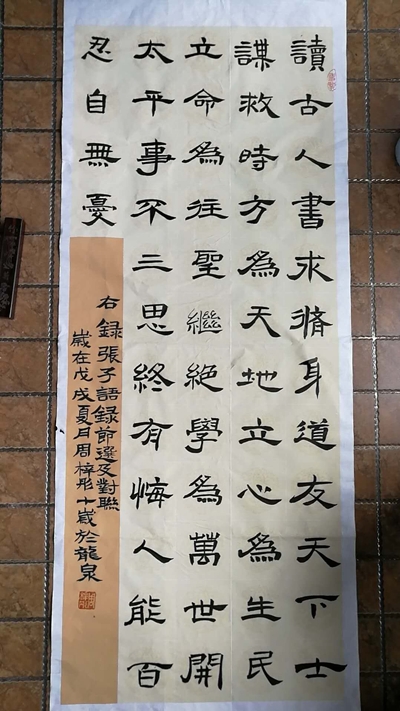 讀古人書求脩身道友天下士
謀救時方為天地立心為生民
立命為往聖繼絕學為萬世開
太平事不三思終有悔人能百
忍自無憂
右錄張子語錄節選及對聯
歲在戊戌夏月周梓彤十歲於龍泉